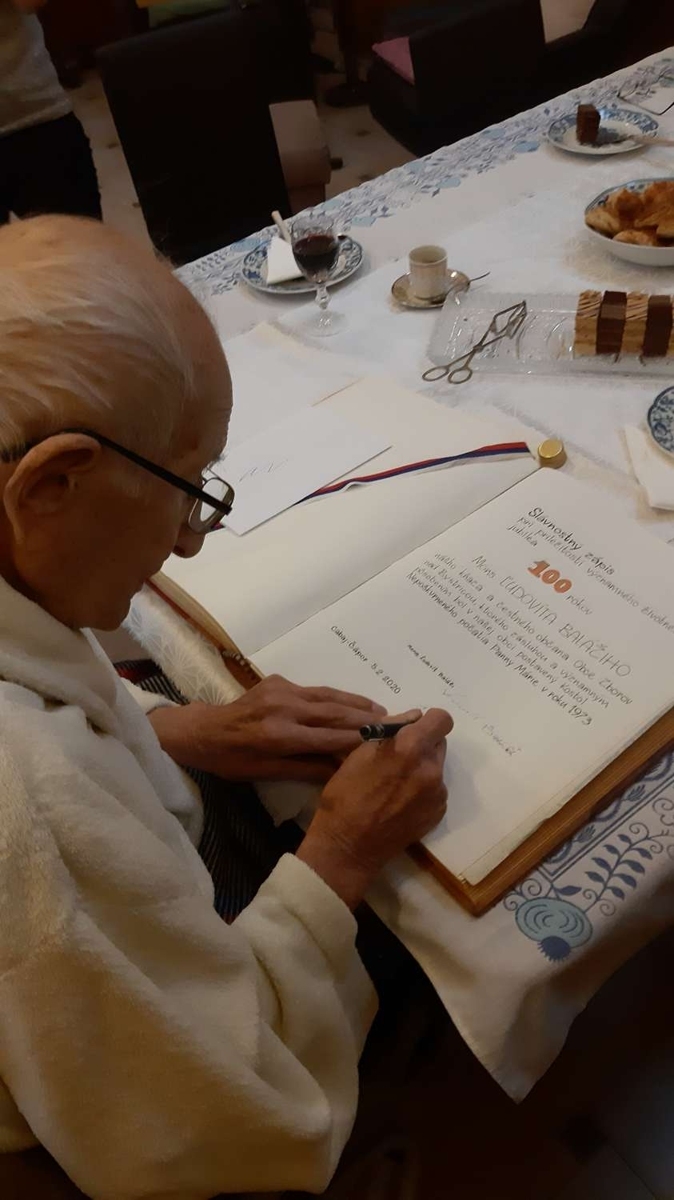 Slávnostný zápis
pri príležitosti významného životného
jubilea
100 rokov
Mons. ĽUDOVÍTA BALÁŽIHO
nášho rodáka a čestného občana Obce Zborov
nad Bystricou, ktorého zásluhou a významným
pôsobením bol v našej obci postavený kostol
Nepoškvrneného počatia Panny Márie v roku 1973
Cabaj Čápor 5.2.2020